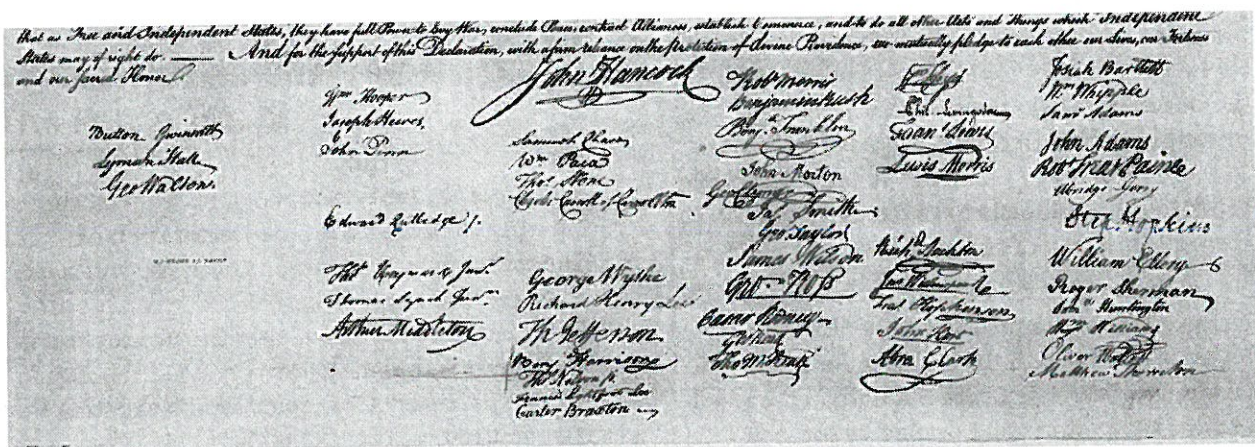 that as Free and Independent States, they have full Power to levy War, conclude Peace, contract Alliances, establish Commerce, and to do all other Acts and Things which Independent
States may of right do. — And for the support of this Declaration, with a firm reliance on the protection of divine Providence, we mutually pledge to each other our Lives, our Fortunes
and our sacred Honor.
Button Gwinnett
Lyman Hall
Geo Walton.
Wm Hooper
Joseph Hewes,
John Penn
Edward Rutledge /.
Thos Heyward Junr.
Thomas Lynch Junr.
Arthur Middleton
John Hancock
Samuel Chase
Wm Paca
Thos Stone
Charles Carroll of Carrollton
George Wythe
Richard Henry Lee
Th Jefferson
Benj Harrison
Thos Nelson jr.
Francis Lightfoot Lee
Carter Braxton
Robt Morris
Benjamin Rush
Benj Franklin
John Morton
Geo Clymer
Jas Smith
Geo Taylor
James Wilson
Geo Ross
Caesar Rodney
Geo Read
Tho M:Kean
Phil. Livingston
Frans Lewis
Lewis Morris
Richd Stockton
Jno Witherspoon
Fras Hopkinson
John Hart
Abra Clark
Josiah Bartlett
Wm Whipple
Saml Adams
John Adams
Robt Treat Paine
Elbridge Gerry
Step Hopkins
William Ellery
Roger Sherman
Saml Huntington
Wm Williams
Oliver Wolcott
Matthew Thornton